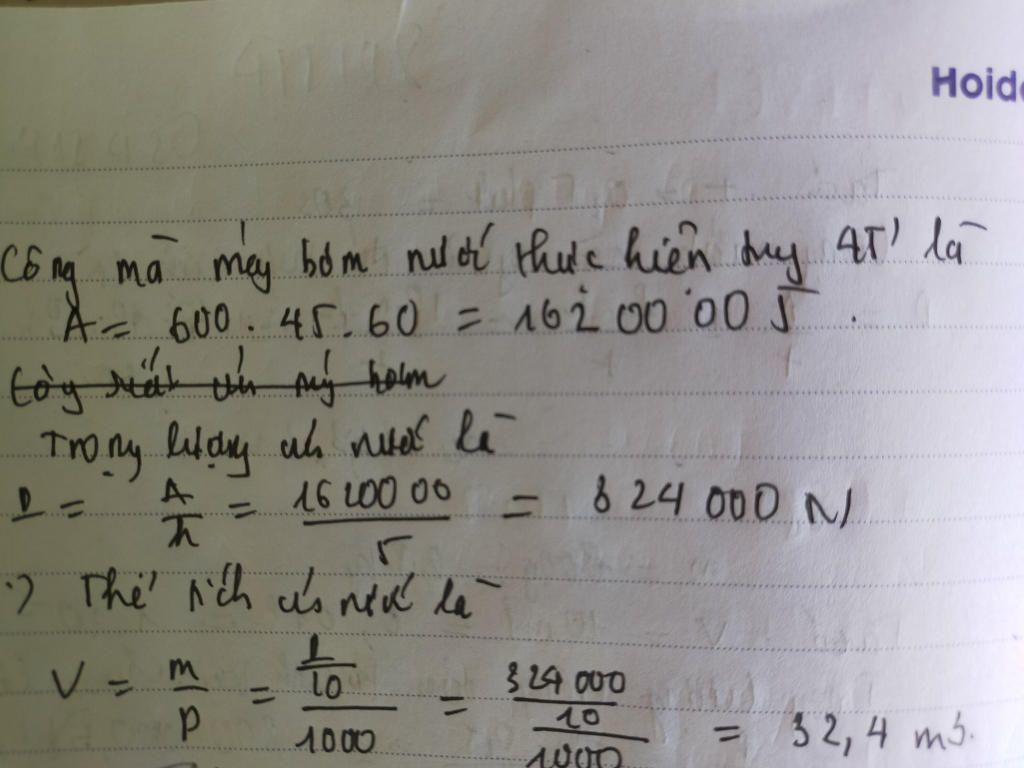 Hoid
Công mà máy bơm nước thực hiện là
A = 600 . 45 . 60 = 1620000 J .
Trọng lượng của nước là
P = A/h = 1620000/5 = 324 000 N
Thể tích của nước là
V = m/D = (P/10)/1000 = (324 000/10)/1000 = 32,4 m3.